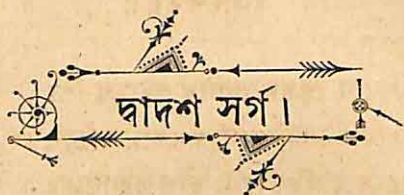 দ্বাদশ সর্গ।